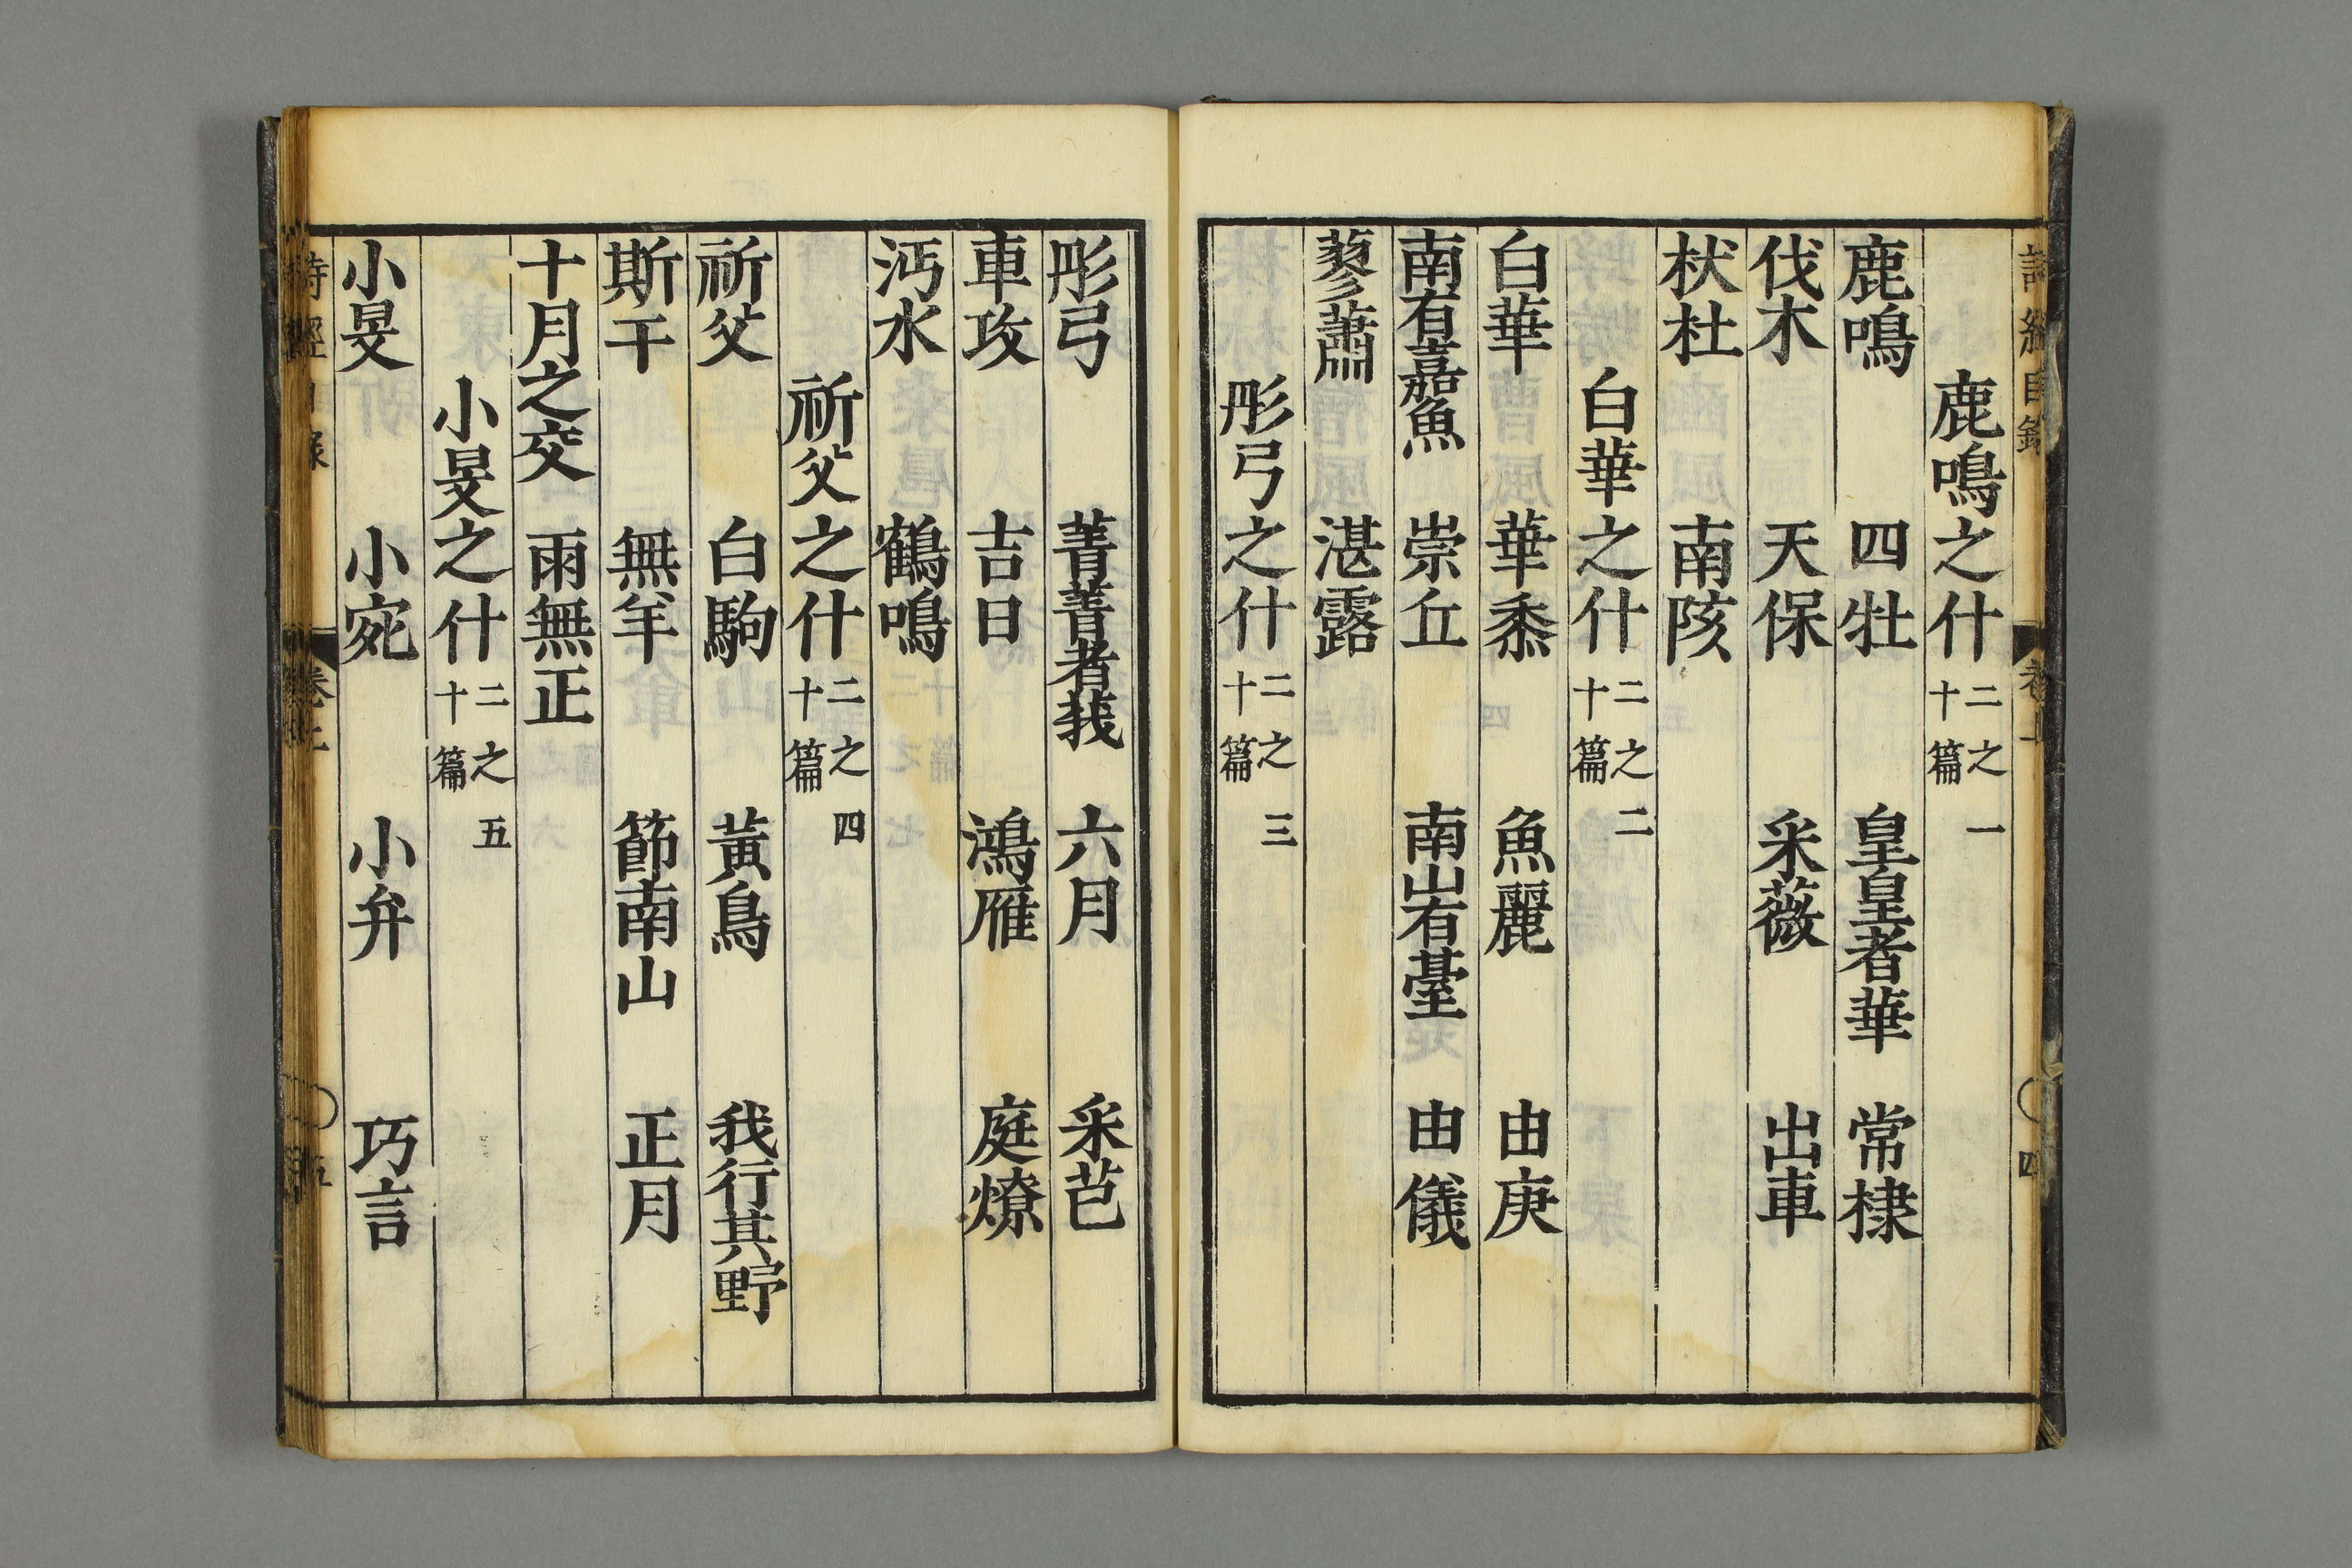 鹿鳴之什二之一十篇
鹿鳴 四牡 皇皇者華 常棣
伐木 天保 采薇 出車
杕杜 南陔
白華之什二之二十篇
白華 華黍 魚麗 由庚
南有嘉魚 崇丘 南山有臺 由儀
蓼蕭 湛露
彤弓之什二之三十篇
彤弓 菁菁者莪 六月 采芑
車攻 吉日 鴻雁 庭燎
沔水 鶴鳴
祈父之什二之四十篇
祈父 白駒 黃鳥 我行其野
斯干 無羊 節南山 正月
十月之交 雨無正
小旻之什二之五十篇
小旻 小宛 小弁 巧言
詩經目錄
五